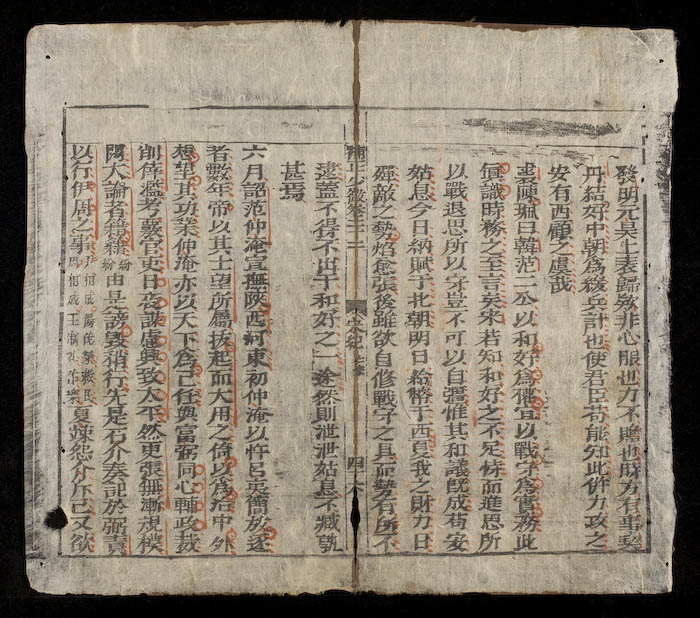 發明元昊上表歸欵非心服也力不贍也時方有事契
丹結好中朝爲緩兵計也使君臣苟能知此併力攻之
安有西顧之虞哉
裴陳珮曰韓范二公以和好爲權宜以戰守爲實務此
眞識時務之至言矣宋若知和好之不足恃而進思所
以戰退思所以守豈不可以自彊惟其和議旣成苟安
姑息今日納賦于北朝明日給幣于西夏我之財力日
殫敵之勢焰愈張後雖欲自修戰守之具而勢有所不
逮蓋不得不出于和好之一途然則泄泄姑息不臧孰
甚焉
少微 宋紀 四六
六月詔范仲淹宣撫陝西河東初仲淹以忤呂夷簡放逐
者數年帝以其士望所屬拔起而大用之倚以爲治中外
想望其功業仲淹亦以天下爲己任與富弼同心輔政裁
削倖濫考覈官吏日夜謀慮興致太平然更張無漸規模
闊大論者籍籍紛紛由是謗毀稍行先是石介奏記於弼責
以行伊周之事尹相成湯伐桀救民周相成王制礼作樂夏竦怨介斥己又欲